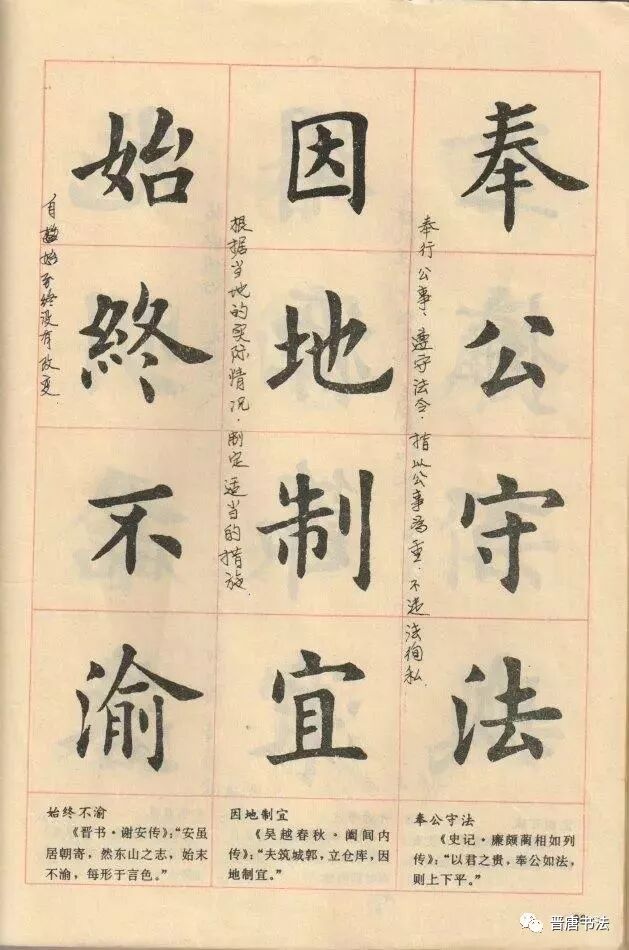 奉公守法
奉行公事，遵守法令，指以公事为重，不违法徇私。
因地制宜
根据当地的实际情况，制定适当的措施。
始终不渝
自始至终没有改变．
奉公守法
《史记·廉颇蔺相如列
传》：“以君之贵，奉公如法，
则上下平。”
因地制宜
《吴越春秋·阖闾内
传》：“夫筑城郭，立仓库，因
地制宜。”
始终不渝
《晋书·谢安传》：“安虽
居朝寄，然东山之志，始末
不渝，每形于言色。”
晋唐书法